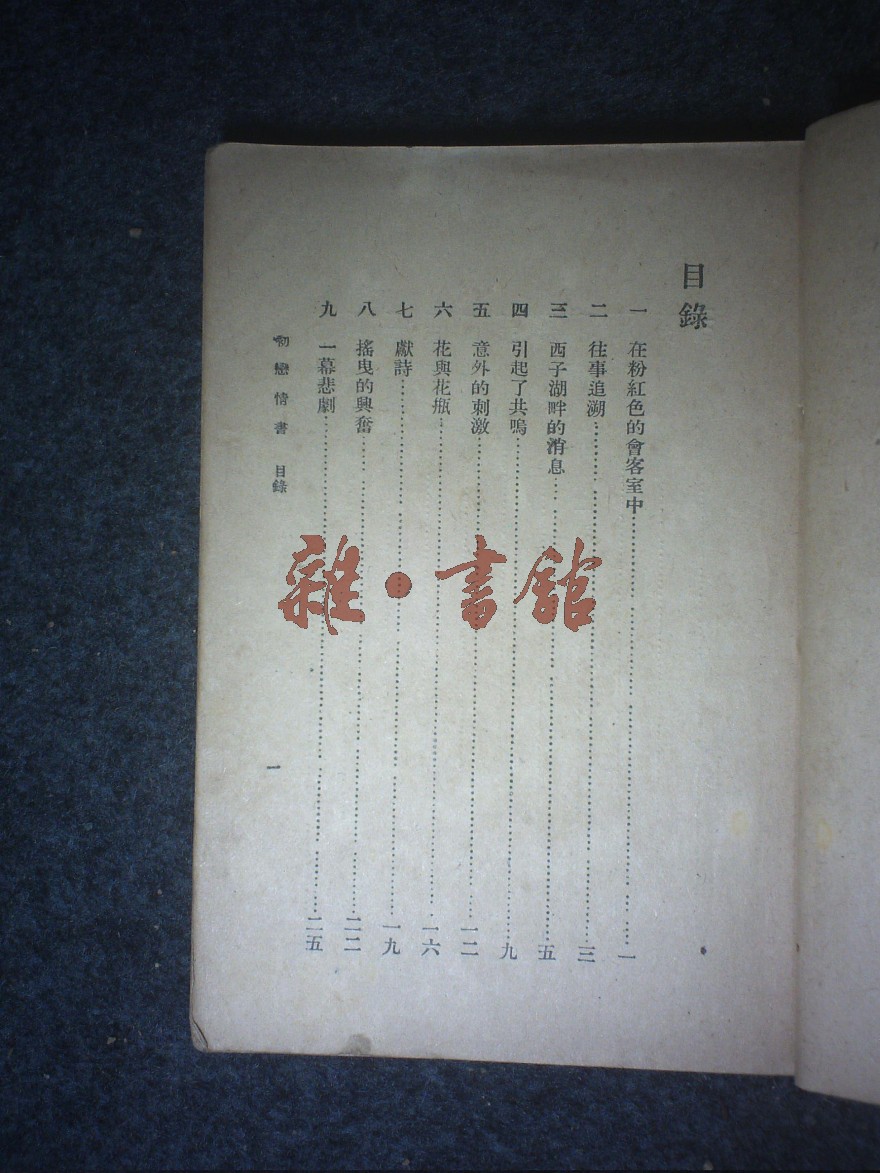 目錄
一 在粉紅色的會客室中 一
二 往事追溯 三
三 西子湖畔的消息 五
四 引起了共鳴 九
五 意外的刺激 一二
六 花與花瓶 一六
七 獻詩 一九
八 搖曳的興奮 二二
九 一幕悲劇 二五
初戀情書 目錄
一
雜·書館